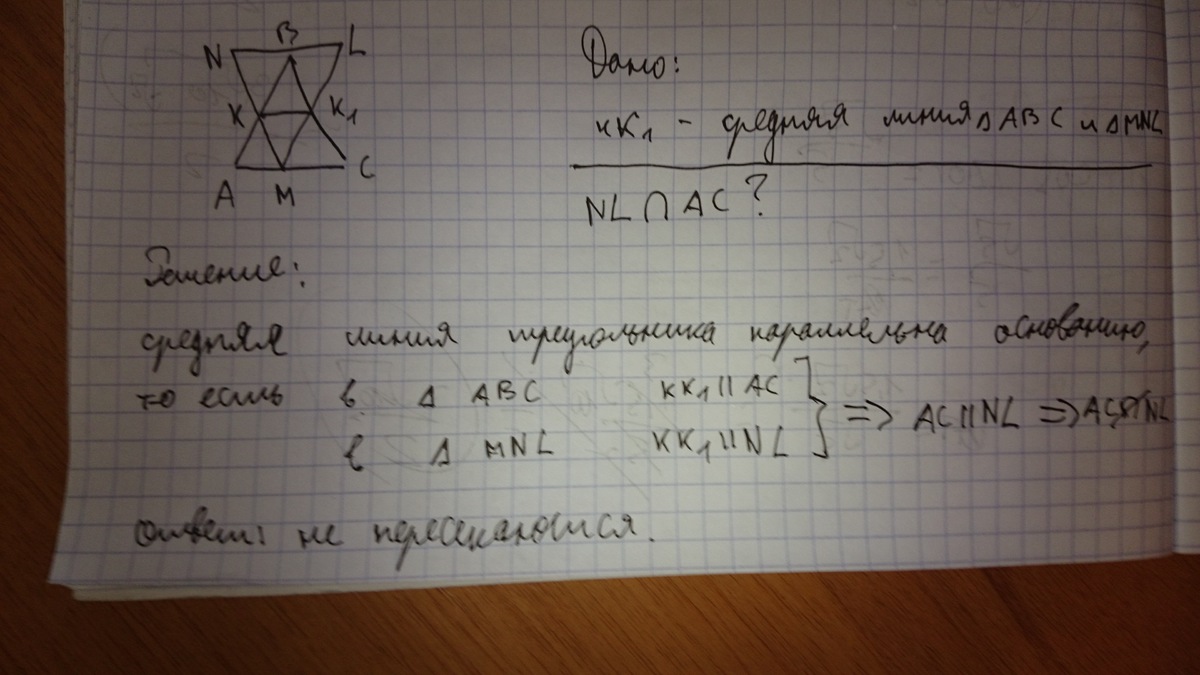 N B L
K K₁
A M C
Дано:
КК₁ - средняя линия Δ ABC и Δ MNL
NL ∩ AC ?
Решение:
средняя линия треугольника параллельна основанию,
то есть в Δ ABC KK₁ || AC
в Δ MNL KK₁ || NL } => AC || NL => AC ∩̸ NL
Ответ: не пересекаются.